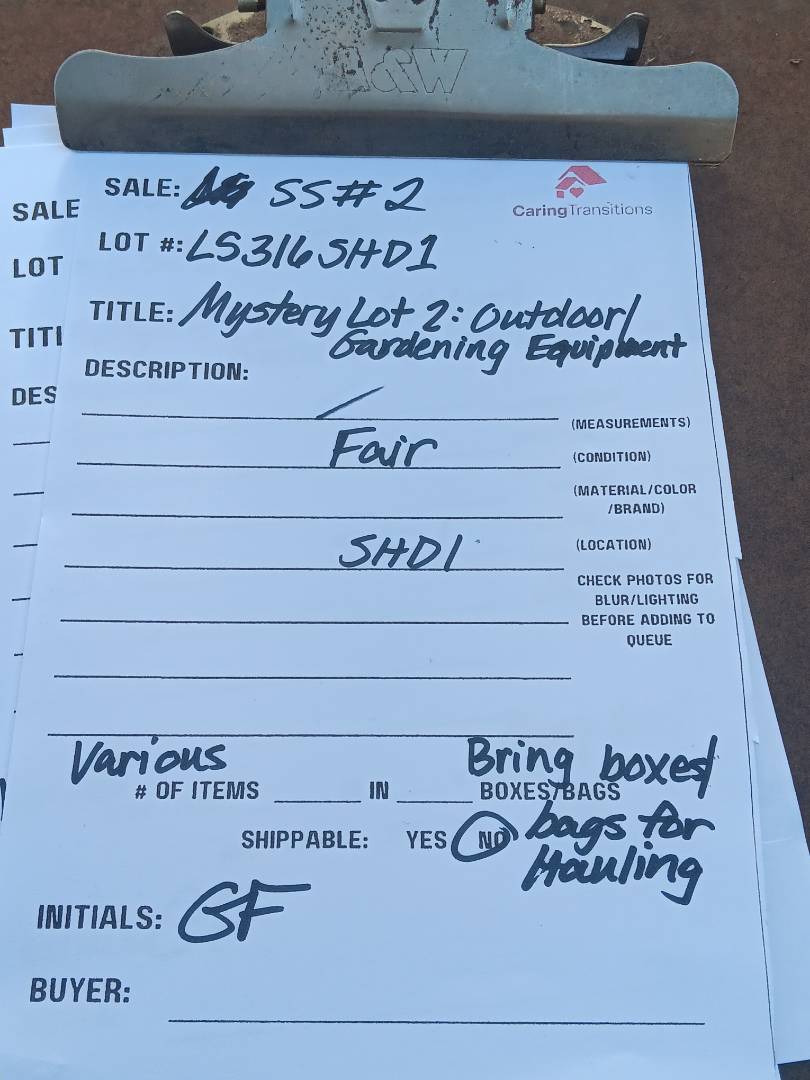 A&W
SALE: SS#2
CaringTransitions
LOT #: LS316SHD1
TITLE: Mystery Lot 2: Outdoor/
Gardening Equipment
DESCRIPTION:
(MEASUREMENTS)
Fair (CONDITION)
(MATERIAL/COLOR
/BRAND)
SHD1 (LOCATION)
CHECK PHOTOS FOR
BLUR/LIGHTING
BEFORE ADDING TO
QUEUE
Various Bring boxes/
# OF ITEMS IN BOXES/BAGS
bags for
SHIPPABLE: YES NO
Hauling
INITIALS: GF
BUYER:
SALE
LOT
TITL
DES